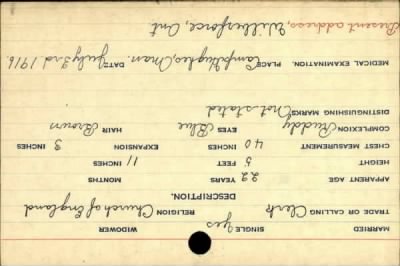 MARRIED SINGLE Yes WIDOWER
TRADE OR CALLING Clerk RELIGION Church of England
DESCRIPTION.
APPARENT AGE 22 YEARS MONTHS
HEIGHT 5 FEET 11 INCHES
CHEST MEASUREMENT 40 INCHES EXPANSION 3 INCHES
COMPLEXION Ruddy EYES Blue HAIR Brown
DISTINGUISHING MARKS not stated
MEDICAL EXAMINATION. PLACE Camp Hughes, Man. DATE July 3rd 1916.
Present address, Wilberforce, Ont